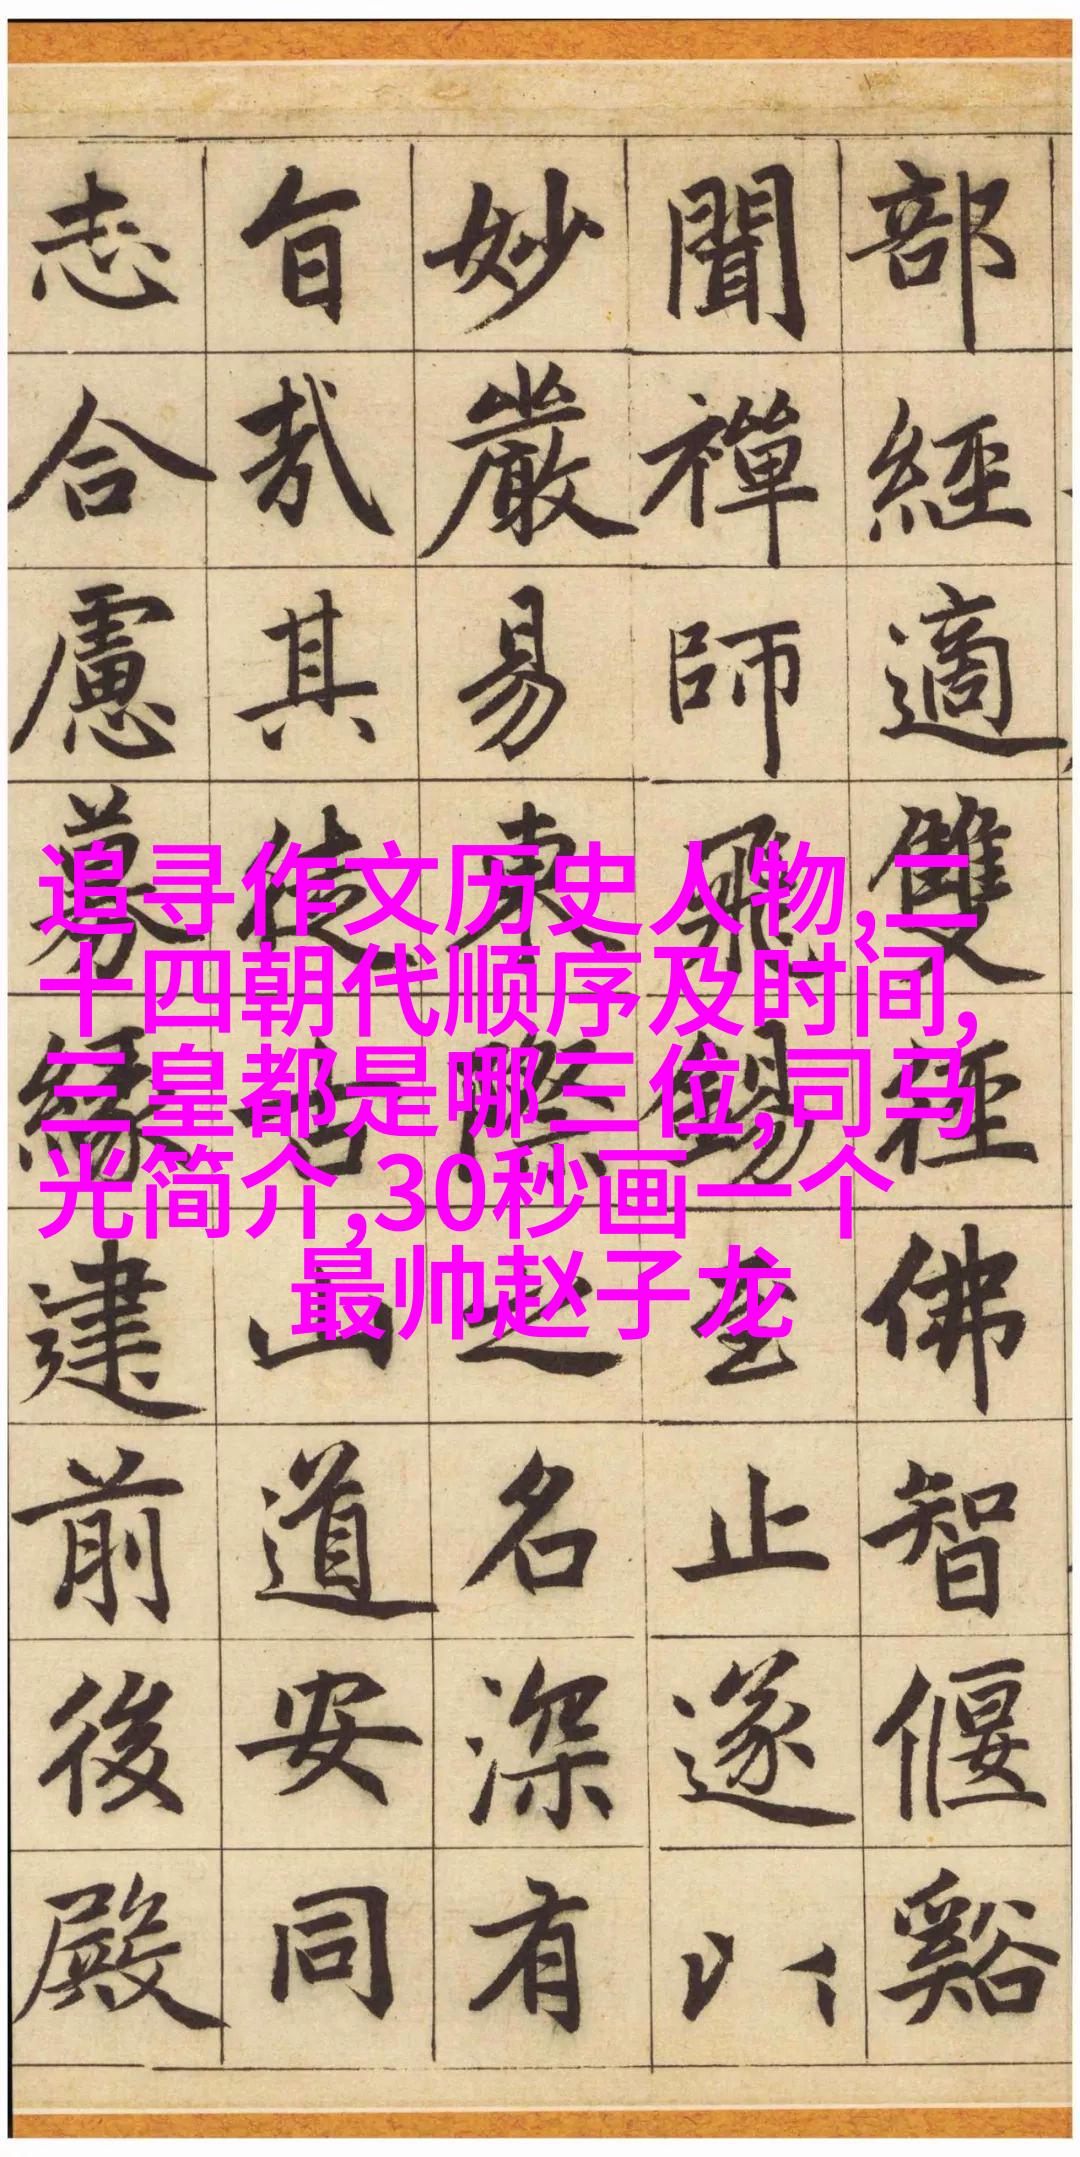 部經適雙徑佛智偃谿
聞禪師飛錫至止遂以
妙嚴易東際之名深有
旨哉其徒古山道安同
志合慮募緣建前後殿
追寻作文历史人物,二
十四朝代顺序及时间,
三皇都是哪三位,司马
光简介,30秒画一个
最帅赵子龙